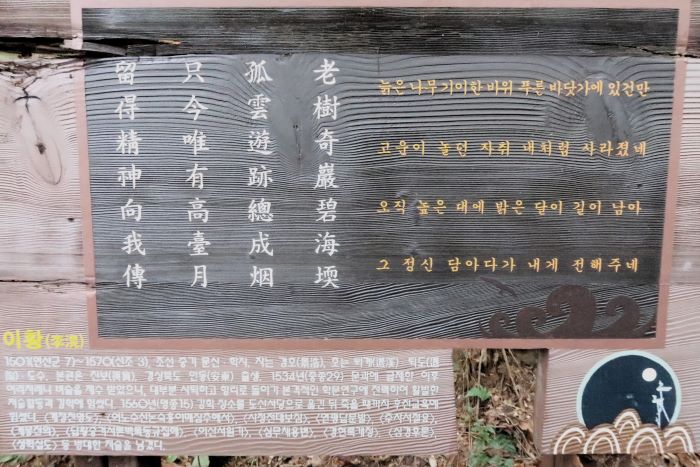 老樹奇巖碧海堧
孤雲遊跡總成烟
只今唯有高臺月
留得精神向我傳
늙은 나무 기이한 바위 푸른 바닷가에 있건만
고운이 놀던 자취 내처럼 사라졌네
오직 높은 대에 밝은 달이 길이 남아
그 정신 담아다가 내게 전해주네
이황(李滉)
1501(연산군 7)~1570(선조 3), 조선 중기 문신·학자. 자는 경호(景浩), 호는 퇴계(退溪)·퇴도(退陶)·도수. 본관은 진보(眞寶), 경상북도 안동(安東) 출생. 1534년(중종29) 문과에 급제한 이후
여러차례나 벼슬을 제수 받았으나, 대부분 사퇴하고 향리로 돌아가 본격적인 학문연구에 진력하여 활발한
저술활동과 강학에 힘썼다. 1560년(명종15) 강학 장소를 도산서당으로 옮긴 뒤 죽을 때까지 후진교육에
힘썼다.
등 방대한 저술을 남겼다.